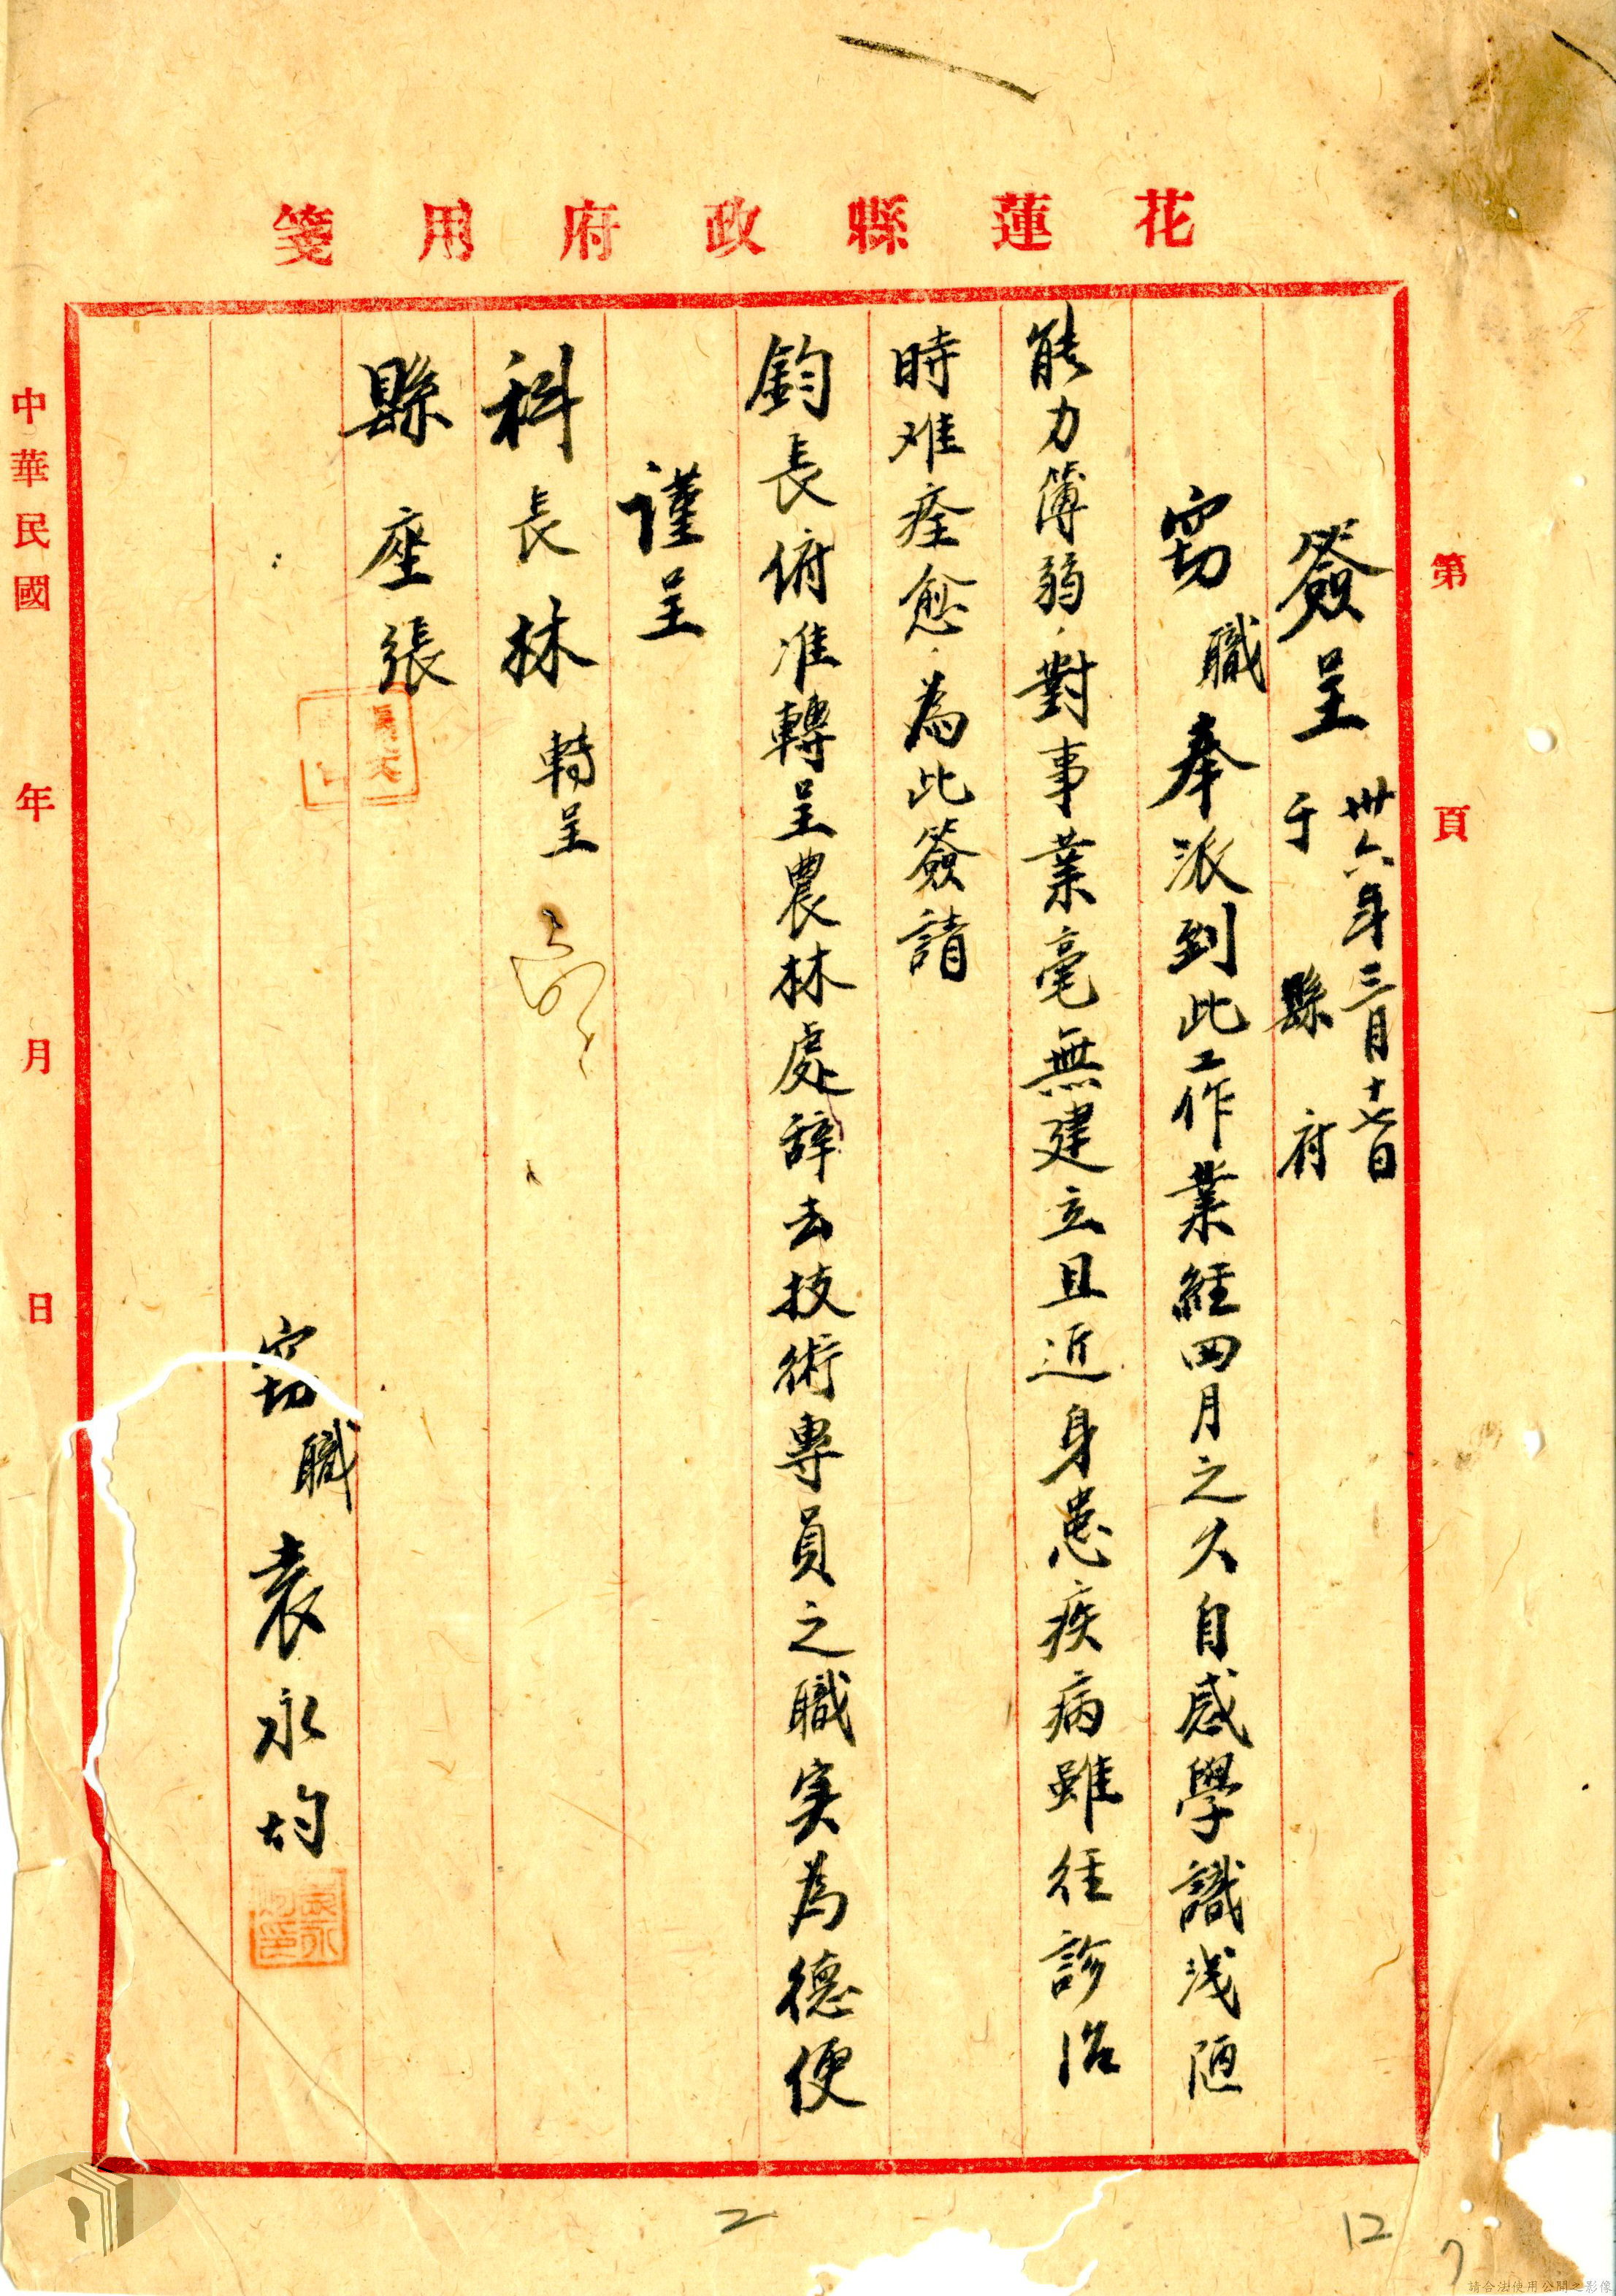 花蓮縣政府用箋
第　頁
簽呈 卅六年三月十七日
于縣府
窃職奉派到此工作業經四月之久自感學識浅陋
能力薄弱、對事業毫無建立且近身患疾病雖往診治
時难痊愈、為此簽請
鈞長俯准轉呈農林處辞去技術專員之職実為德便
謹呈
科長林 轉呈
縣座張
窃職袁永均
中華民國　年　月　日
2
12
7
請合法使用公開之影像